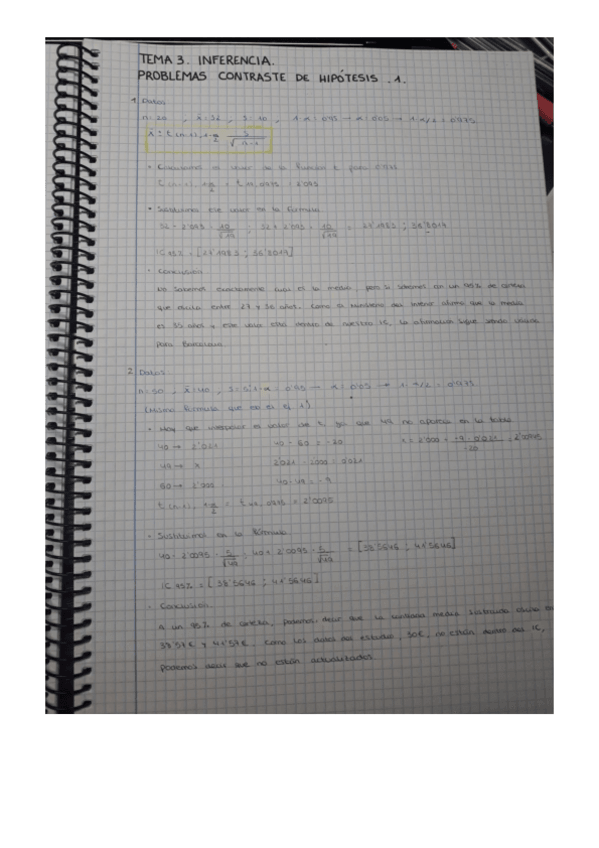 TEMA 3. INFERENCIA.
PROBLEMAS CONTRASTE DE HIPÓTESIS .1.
1 Datos
n = 20 , x̄ = 32 , S = 10 , 1-α = 0'95 → α = 0'05 → 1-α/2 = 0'975
x̄ ± t (n-1), 1-α/2 · S/√(n-1)
• el valor de la función t para 0'975
t (n-1), 1-α/2 = t 19, 0'975 = 2'093
• Sustituimos ese valor en la fórmula
32 - 2'093 · 10/√19 ; 32 + 2'093 · 10/√19 = 27'1983 ; 36'8017
IC 95% = [27'1983 ; 36'8017]
• Conclusión
No sabemos exactamente cual es la media, pero si sabemos en un 95% de certeza
que oscila entre 27 y 36 años. Como el Ministerio del Interior afirma que la media
es 35 años y este valor está dentro de nuestro IC, la afirmación sigue siendo
para Barcelona.
2 Datos
n = 50 , x̄ = 40 , S = 5'5 1-α = 0'95 → α = 0'05 → 1-α/2 = 0'975
(Misma fórmula que en el ej 1)
• Hay que interpolar el valor de t, ya que 49 no aparece en la tabla
40 → 2'021 40 - 60 = -20 x = 2'000 + -9 · 0'021 / -20 = 2'0095
49 → x 2'021 - 2'000 = 0'021
60 → 2'000 40 - 49 = -9
t (n-1), 1-α/2 = t 49, 0'975 = 2'0095
• Sustituimos en la fórmula
40 - 2'0095 · /√49 ; 40 + 2'0095 · /√49 = [38'5646 ; 41'5646]
IC 95% = [38'5646 ; 41'5646]
• Conclusión
A un 95% de certeza, podemos decir que la media oscila
38'57€ y 41'57€. Como los datos del estudio, 50€, no están dentro del IC,
podemos decir que no están actualizados.